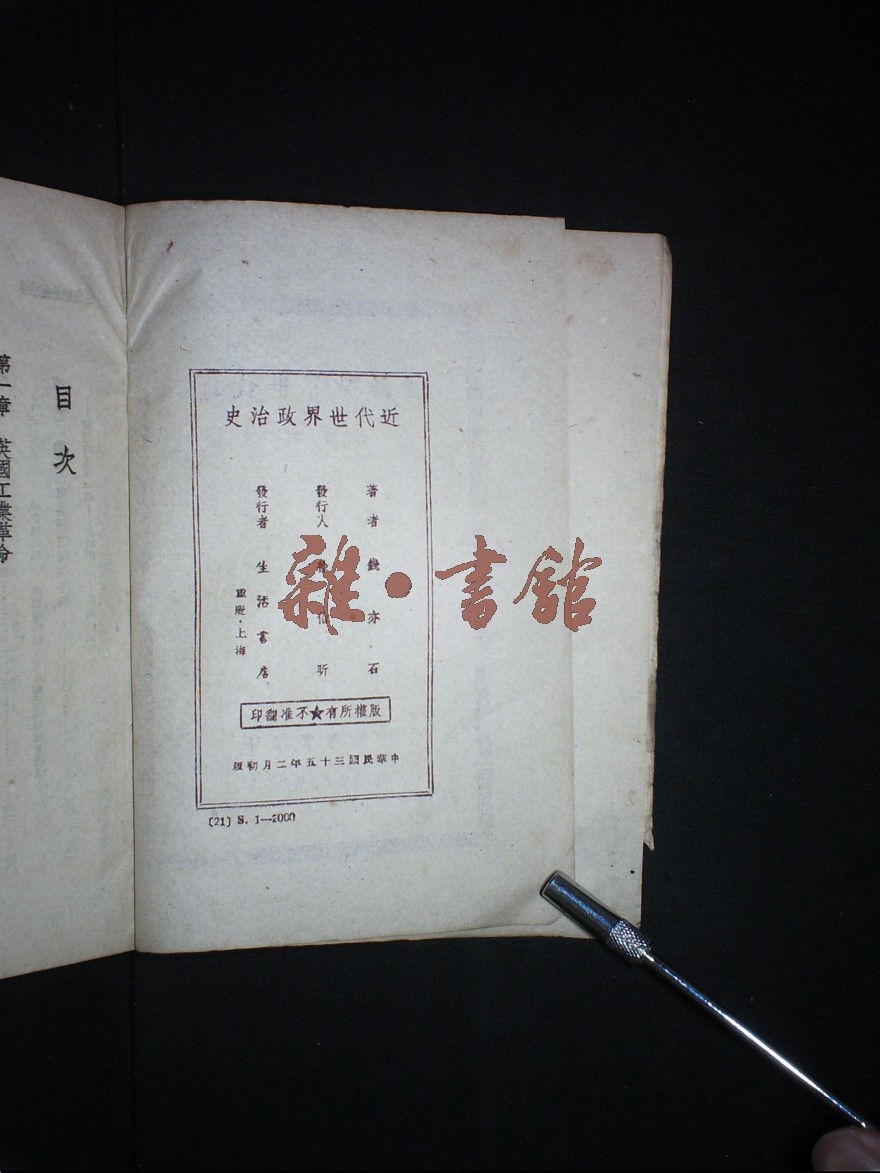 近代世界政治史
著者 錢亦石
發行人 伯昕
發行者 生活書店
重慶·上海
版權所有★不准翻印
中華民國三十五年二月初版
〔21〕 S. 1—2000
目次
第一章 英國工業革命
雜·書館